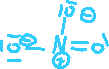 |O̅|⊖
|O̲̅|⊖ N⊕ = O'